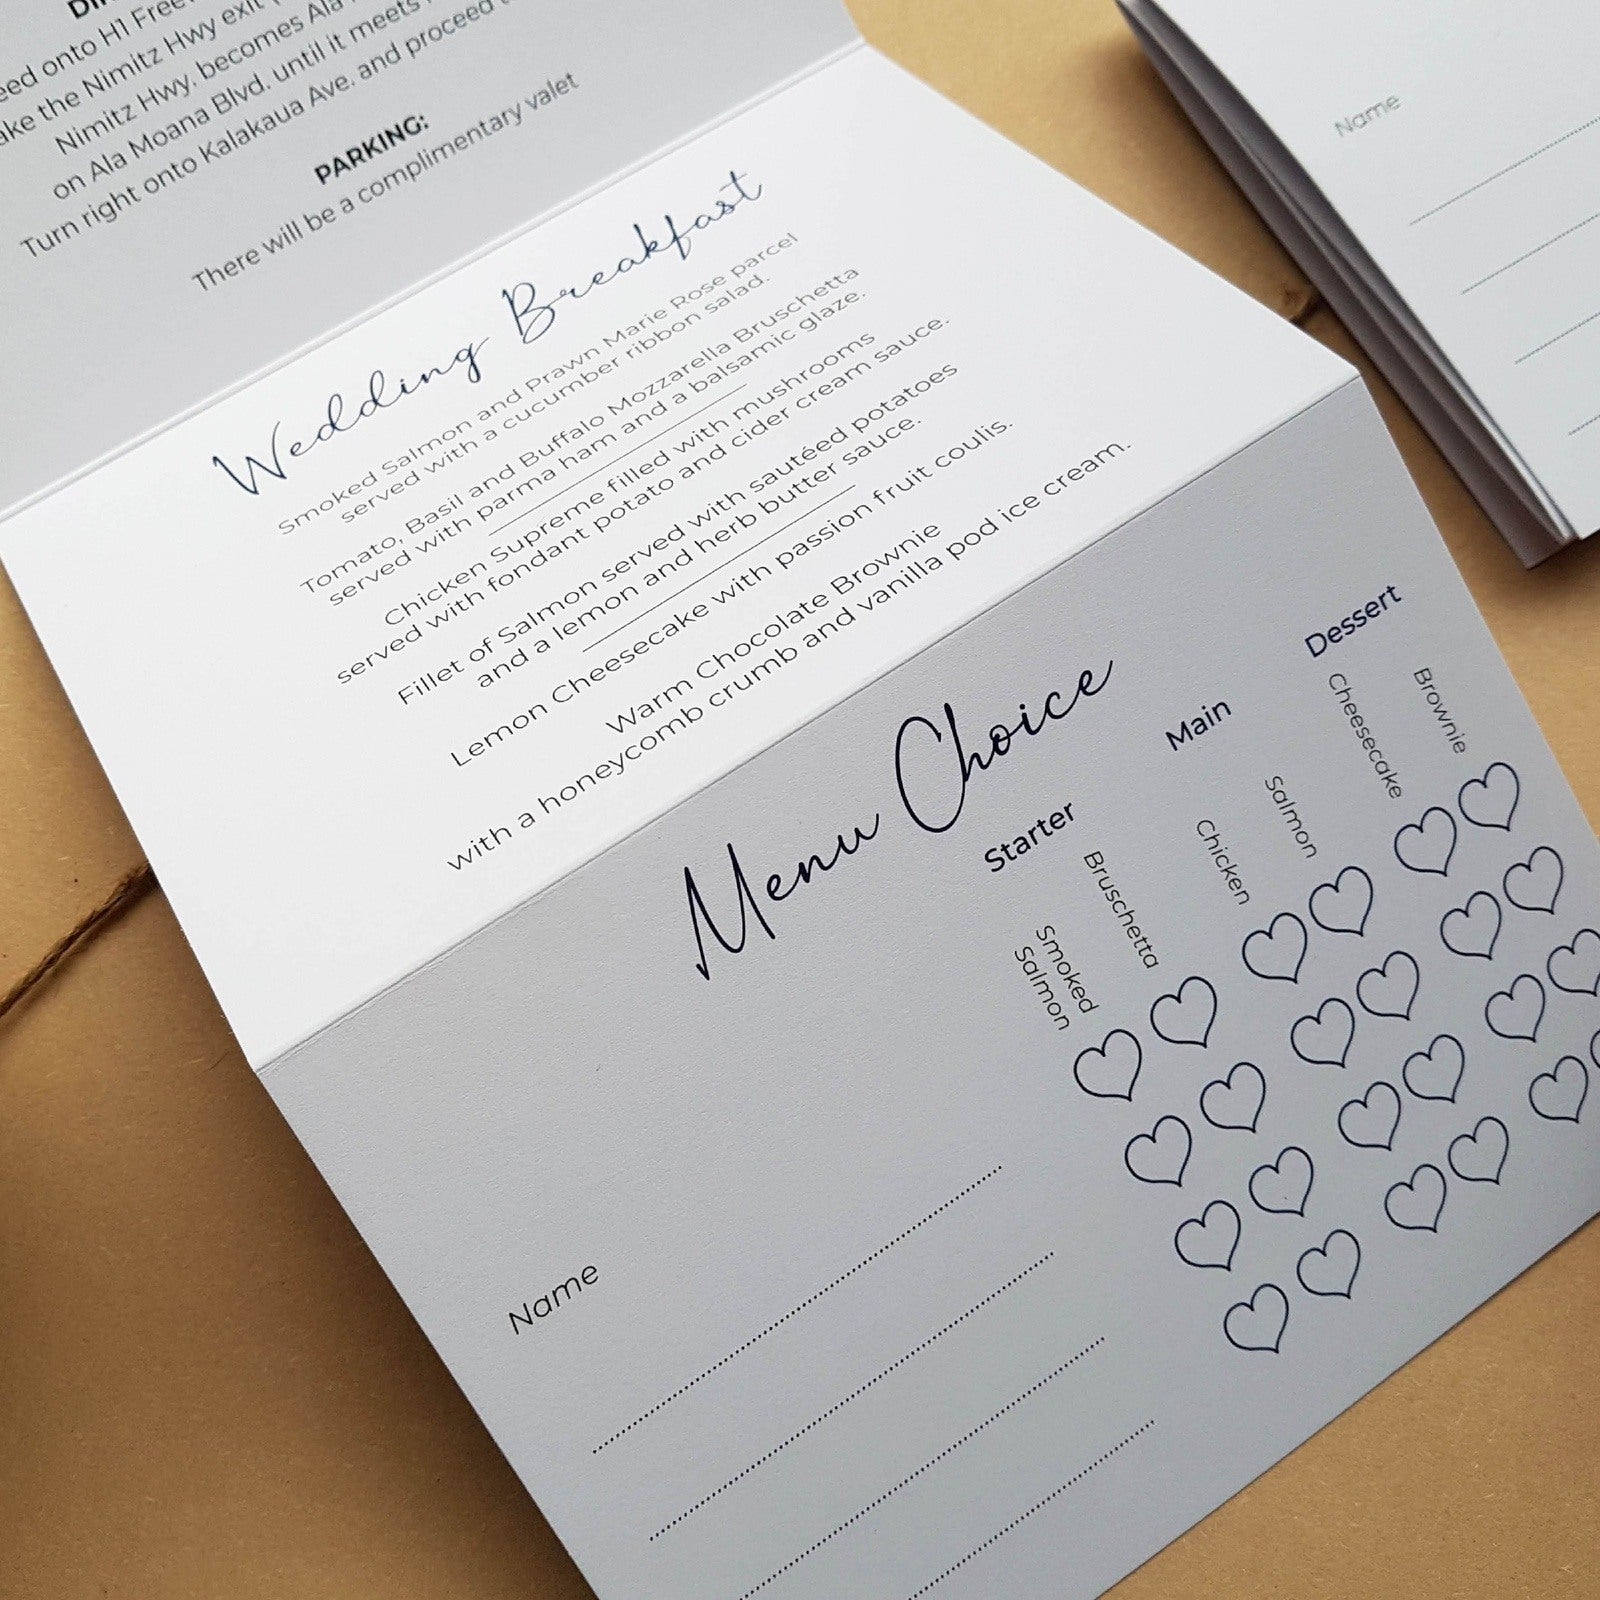 onto H1
the Nimitz Hwy exit
Nimitz Hwy. becomes Ala
on Ala Moana Blvd. until it meets
Turn right onto Kalakaua Ave. and proceed
PARKING:
There will be a complimentary valet
Wedding Breakfast
Smoked Salmon and Prawn Marie Rose parcel
served with a cucumber ribbon salad.
Tomato, Basil and Buffalo Mozzarella Bruschetta
served with parma ham and a balsamic glaze.
Chicken Supreme filled with mushrooms
served with fondant potato and cider cream sauce.
Fillet of Salmon served with sautéed potatoes
and a lemon and herb butter sauce.
Lemon Cheesecake with passion fruit coulis.
Warm Chocolate Brownie
with a honeycomb crumb and vanilla pod ice cream.
Menu Choice
Starter
Main
Dessert
Smoked
Salmon
Bruschetta
Chicken
Salmon
Cheesecake
Brownie
Name
Name